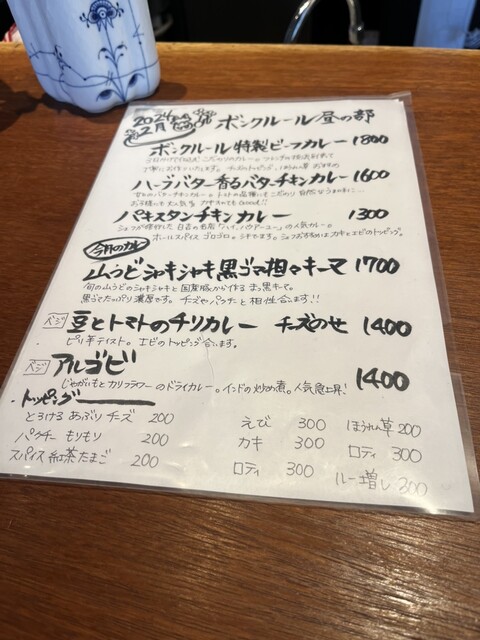 2024
2月 ボンクルール 昼の部
ボンクルール特製ビーフカレー 1800
ハーブバター香るバターチキンカレー 1600
パキスタンチキンカレー 1300
ホールスパイス ゴロゴロ。シチです。シェフおすすめはカキとエビのトッピング。
今月のカレー
山うどシャキシャキ黒ゴマ担々キーマ 1700
旬の山うどのシャキシャキと国産豚から作るまっ黒キーマ。
黒ゴマたっぷり濃厚です。チーズやパクチーと相性合います!!
ベジ 豆とトマトのチリカレー チーズのせ 1400
ピリ辛テイスト。エビのトッピング合います。
ベジ アルゴビ 1400
じゃがいもとカリフラワーのドライカレー。インドの炒め煮。人気急上昇!
トッピング
とろける あぶり チーズ 200 えび 300 ほうれん草 200
パクチー もりもり 200 カキ 300 ロティ 300
スパイス紅茶たまご 200 ロティ 300 ルー増し 300